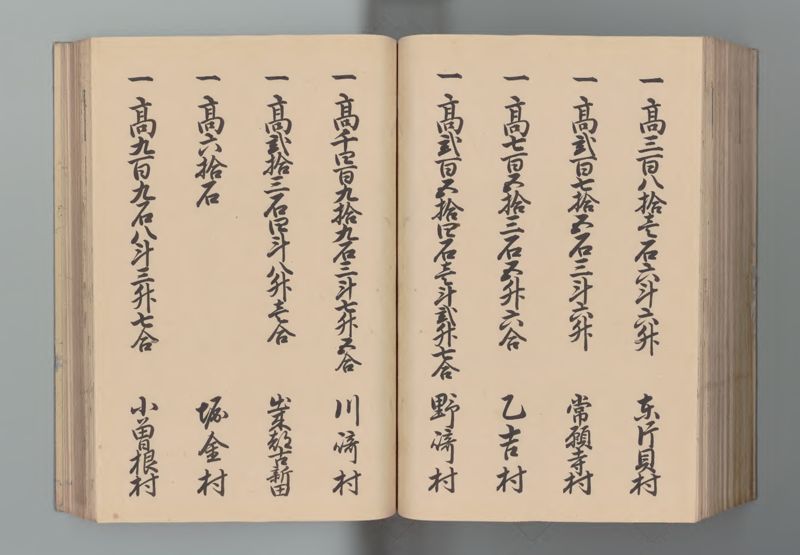 一高三百八拾壱石六斗六升 東片貝村
一高弐百七拾五石三斗六升 常願寺村
一高七百五拾三石五升六合 乙吉村
一高弐百五拾四石壱斗弐升七合 野崎村
一高千四百九拾九石三斗七升五合 川崎村
一高弐拾三石四斗八升壱合 古新田
一高六拾石 堀金村
一高九百九石八斗三升七合 小曽根村